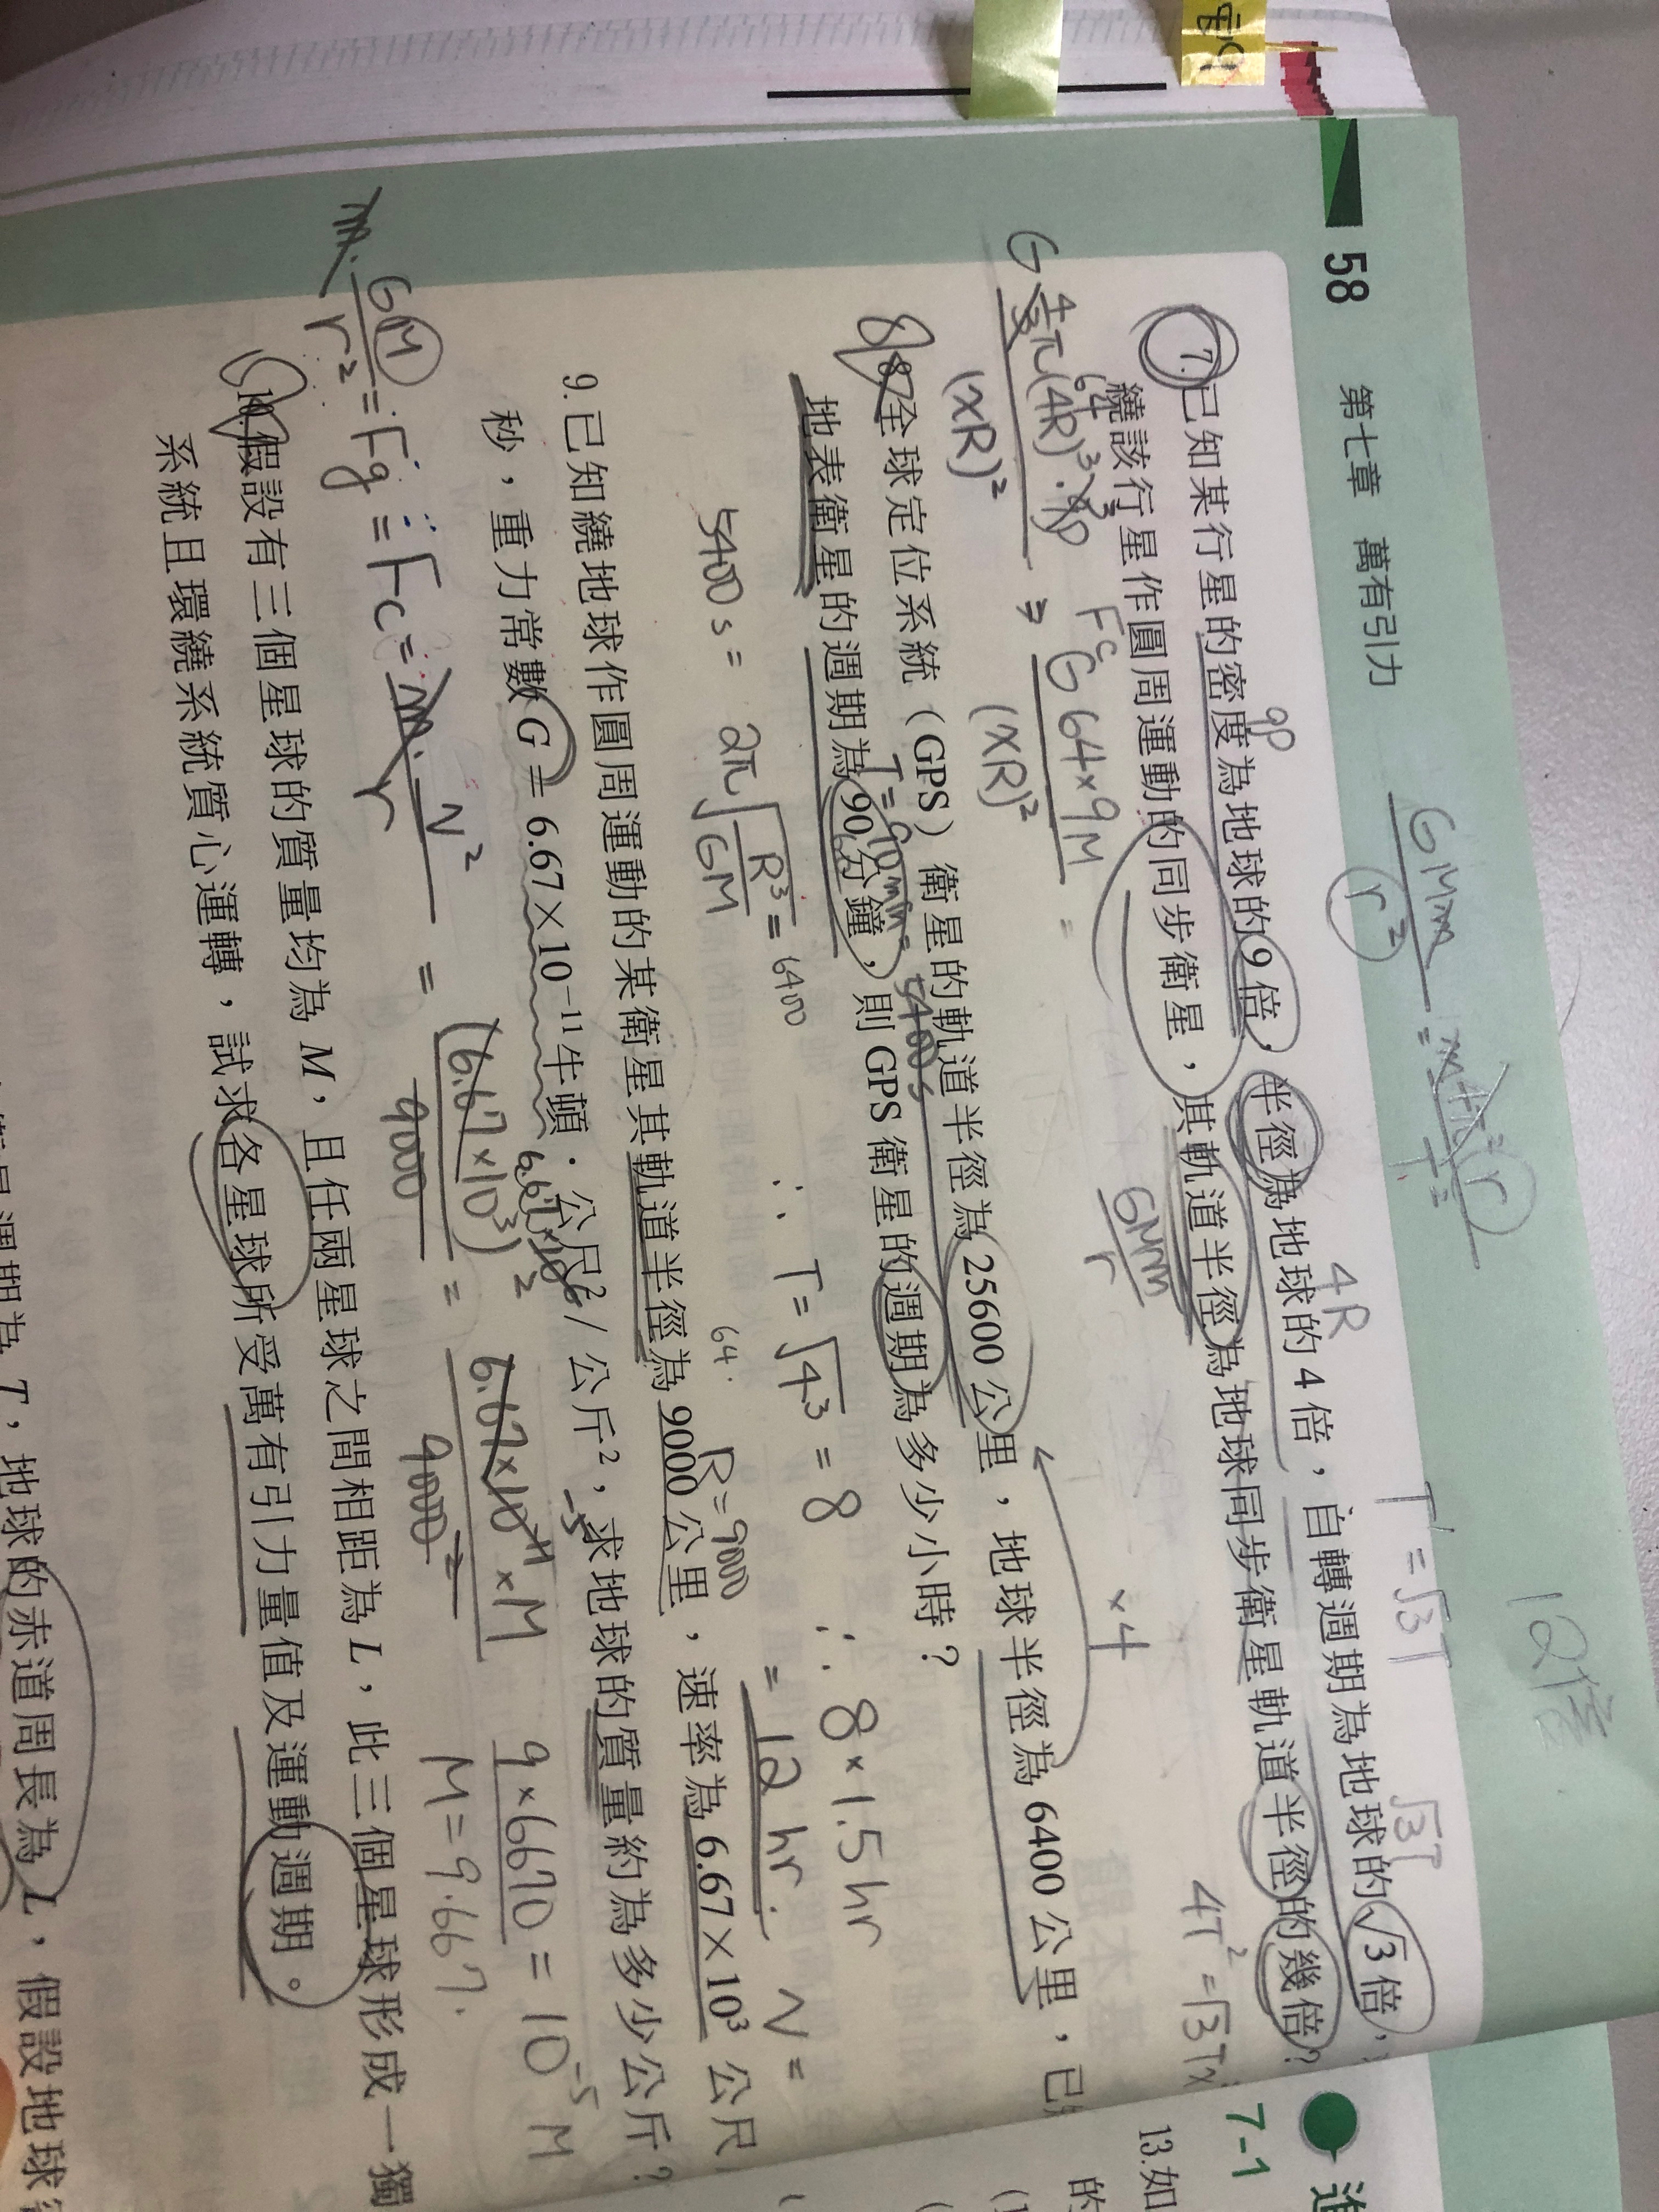 58
第七章 萬有引力
GMm
r²
12倍
T' = √3T
9ρ
4R
√3T
7.已知某行星的密度為地球的9倍，半徑為地球的4倍，自轉週期為地球的√3倍，
繞該行星作圓周運動的同步衛星，其軌道半徑為地球同步衛星軌道半徑的幾倍？
Fc
GMm
r
(xR)²
G64×9M
(xR)²
×4
8.全球定位系統（GPS）衛星的軌道半徑為25600公里，地球半徑為6400公里，已
T=90min=5400s
地表衛星的週期為90分鐘，則GPS衛星的週期為多少小時？
5400s = 2π√R³/GM = 6400
∴ T=√4³ = 8
∴ 8×1.5hr
= 12hr.
64.
R=9000
V=
9.已知繞地球作圓周運動的某衛星其軌道半徑為9000公里，速率為6.67×10³公尺
秒，重力常數G＝6.67×10⁻¹¹牛頓．公尺²/公斤²，求地球的質量約為多少公斤？
m·GM/r² = Fg = Fc = m·V²/r = (6.67×10³)²/9000 = 6.67×10⁻¹¹×M/9000²
9×6670 = 10⁻⁵M
M=9.667.
10.假設有三個星球的質量均為M，且任兩星球之間相距為L，此三個星球形成一獨
系統且環繞系統質心運轉，試求各星球所受萬有引力量值及運動週期。
週期為T，地球的赤道周長為L，假設地球
進
7-1
13.如
的